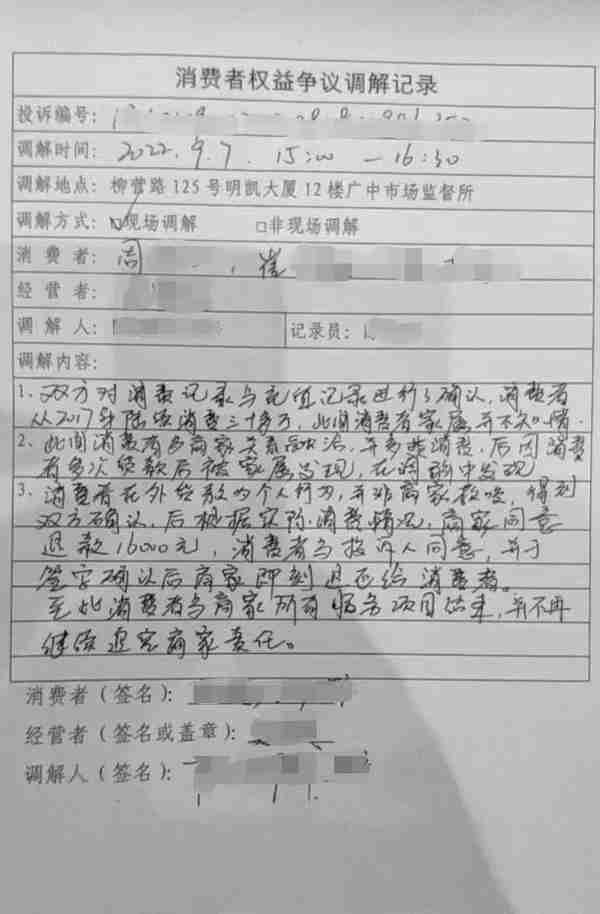 消费者权益争议调解记录
投诉编号：
调解时间： 2022.9.7. 15:00 — 16:30
调解地点：柳营路125号明凯大厦12楼广中市场监督所
调解方式：☑现场调解 □非现场调解
消 费 者： 周 ，崔
经 营 者：
调 解 人： 记录员：
调解内容：
1、双方对消费记录与充值记录进行了确认，消费者
从2017年陆续消费三十多万，此间消费者家属并不知情。
2、此间消费者与商家关系融洽，并多些消费，后因消费
者多次贷款后被家属发现，在调解中发现
3、消费者在外贷款为个人行为，并非商家教唆，得到
双方确认，后根据实际消费情况，商家同意
退款16000元，消费者与投诉人同意，并于
签字确认后商家即刻退还给消费者。
至此消费者与商家所有服务项目结束，并不再
继续追究商家责任。
消费者（签名）：
经营者（签名或盖章）：
调解人（签名）：